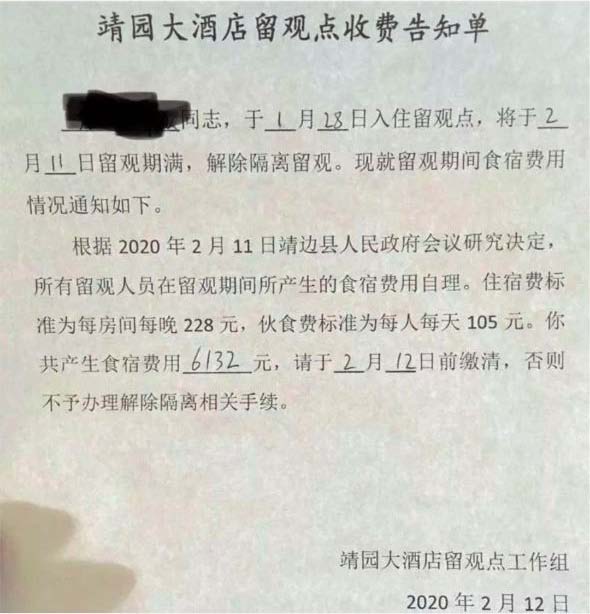 靖园大酒店留观点收费告知单
同志，于1月28日入住留观点，将于2
月11日留观期满，解除隔离留观。现就留观期间食宿费用
情况通知如下。
根据2020年2月11日靖边县人民政府会议研究决定，
所有留观人员在留观期间所产生的食宿费用自理。住宿费标
准为每房间每晚228元，伙食费标准为每人每天105元。你
共产生食宿费用6132元，请于2月12日前缴清，否则
不予办理解除隔离相关手续。
靖园大酒店留观点工作组
2020年2月12日